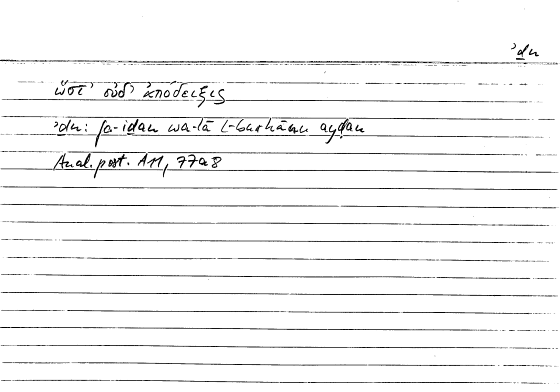 ʾḏn
ὥστ’ οὐδ’ ἀπόδειξις
ʾḏn: fa-iḏan wa-lā l-burhānu ayḍan
Anal. post. A11, 77a8